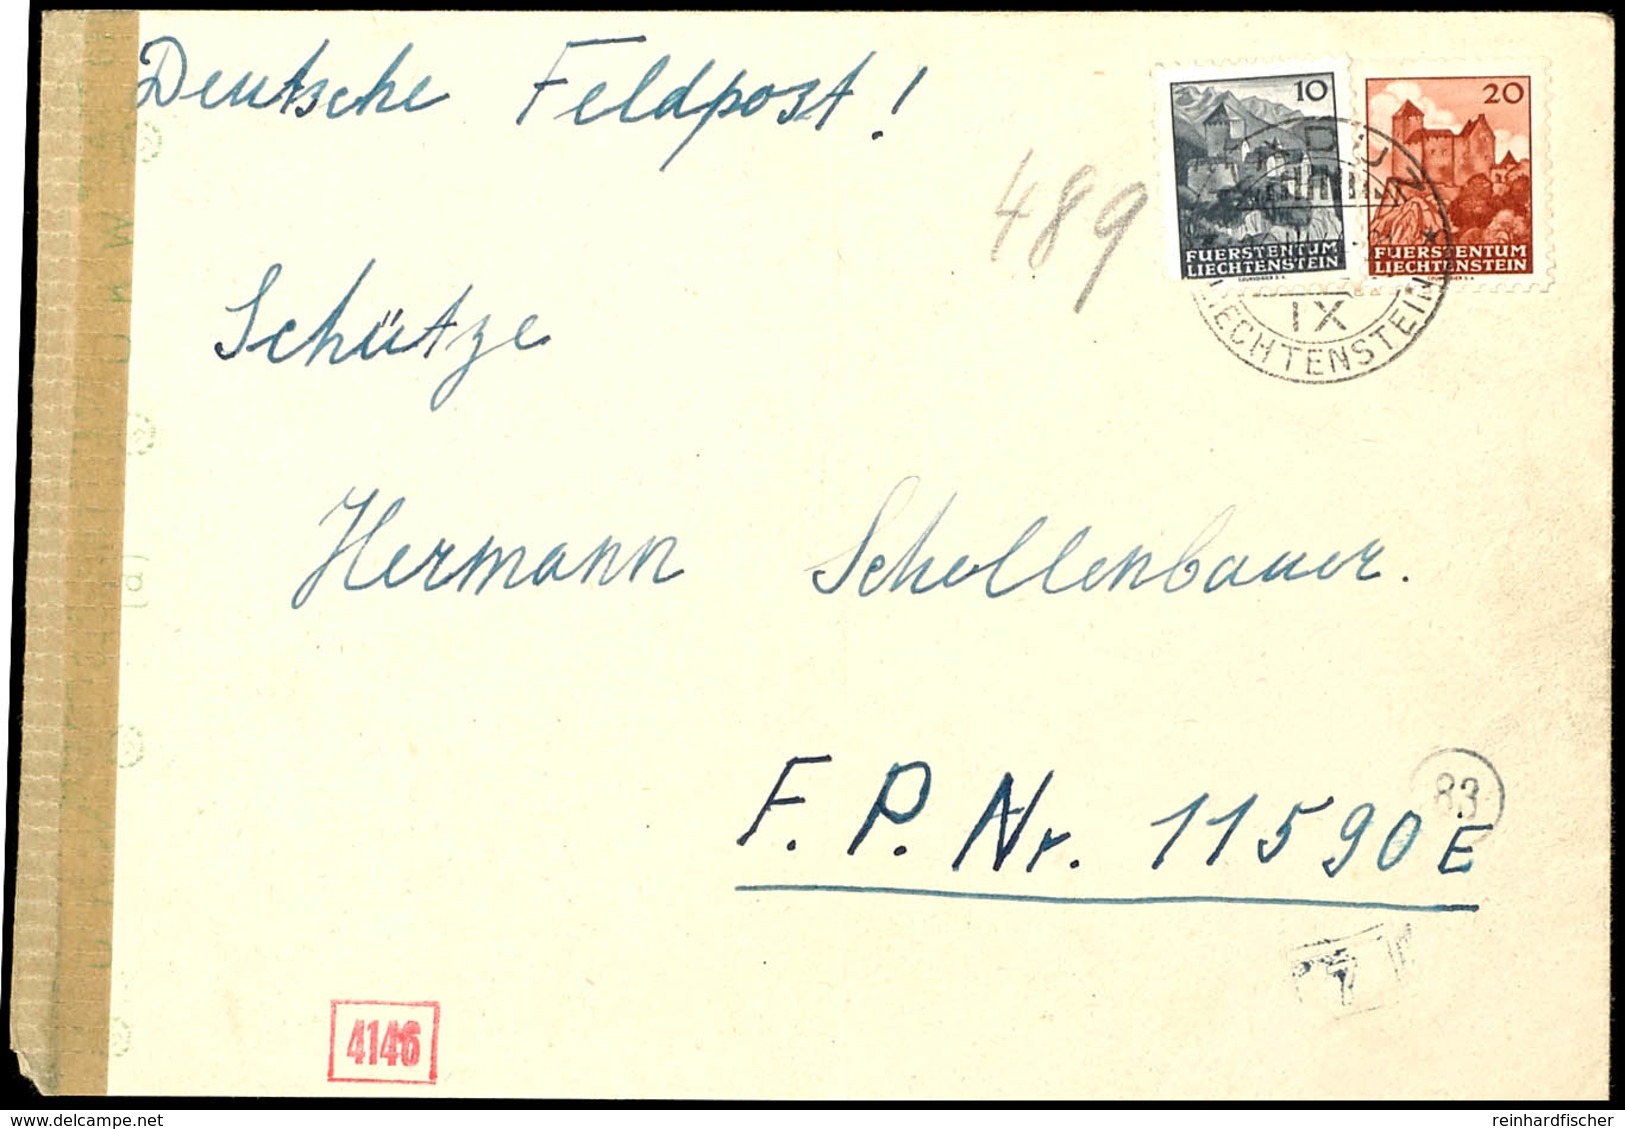 Deutsche Feldpost!
10
20
FUERSTENTUM
LIECHTENSTEIN
FUERSTENTUM
LIECHTENSTEIN
489
IX
LIECHTENSTEIN
Schütze
Hermann Schellenbauer.
83
F. P. Nr. 11590 E
4146
delcampe.net
reinhardfischer